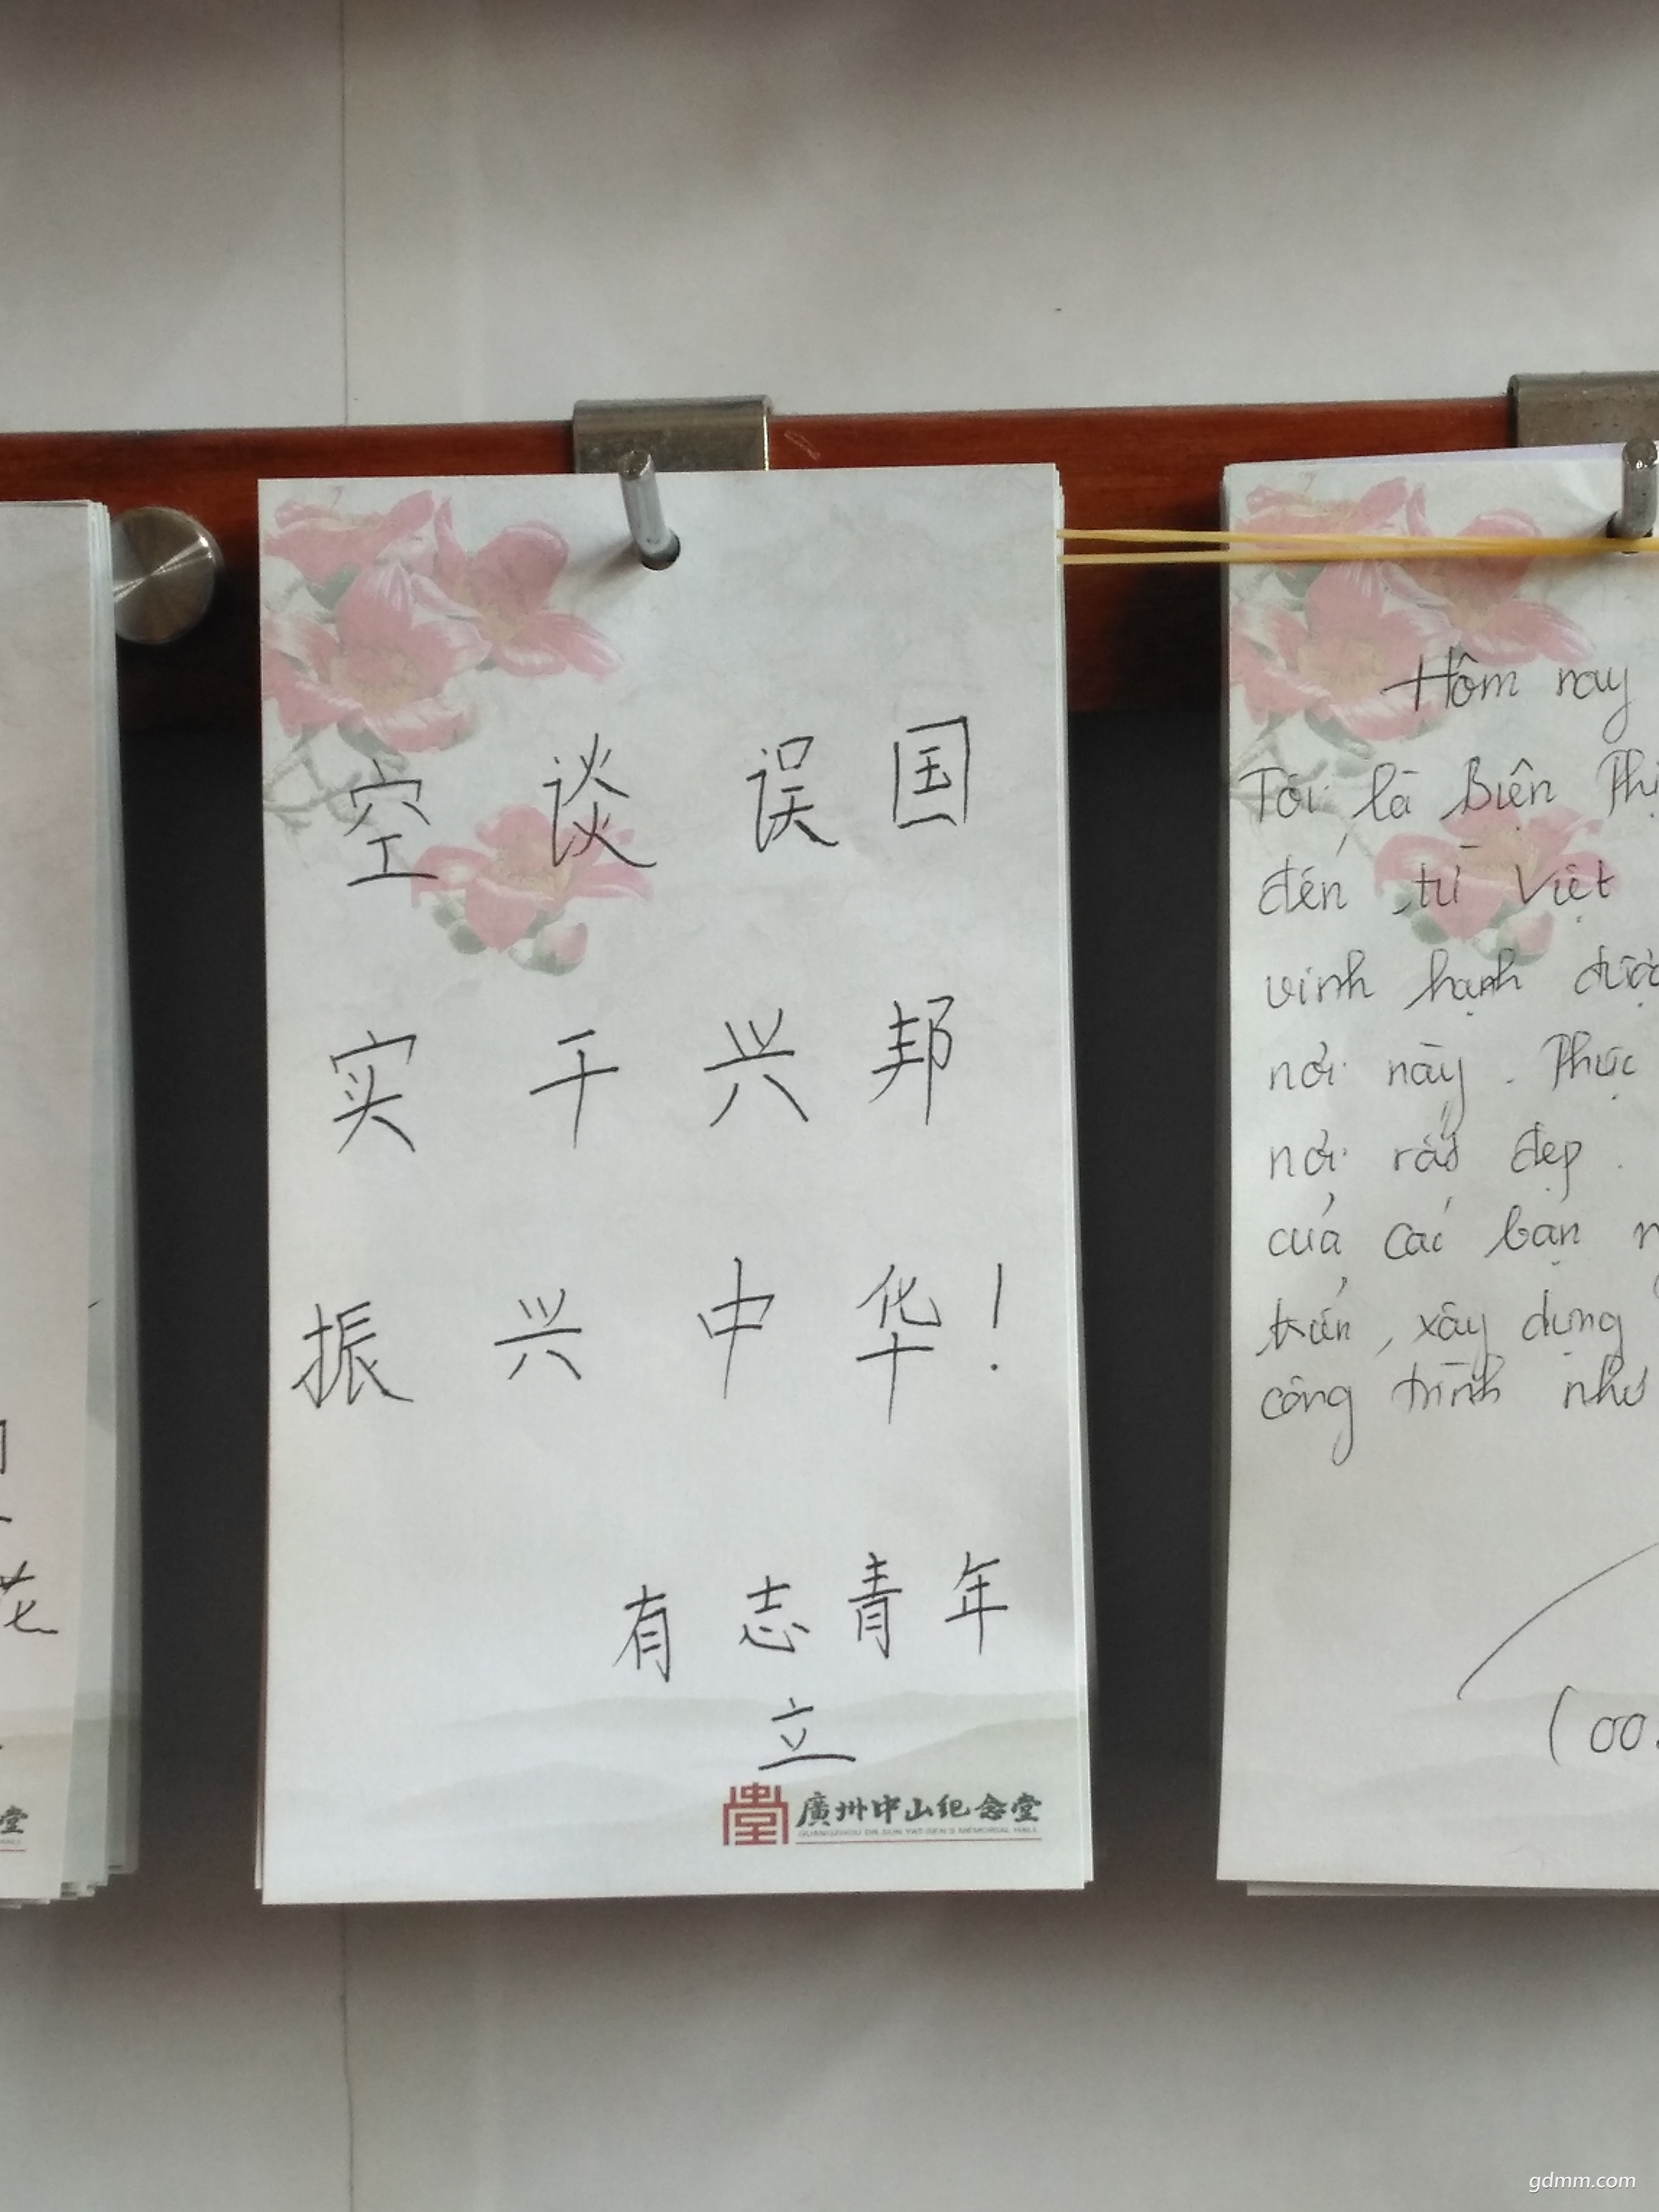 空谈误国
实干兴邦
振兴中华！
有志青年
立
廣州中山纪念堂
GUANGZHOU DR.SUN YAT-SEN'S MEMORIAL HALL
Hôm nay
Tôi là Biện
đến từ Việt
vinh hạnh
nơi này. Phúc
nơi rất đẹp.
của các bạn
xây dựng
công trình như
(00.
花
堂
gdmm.com